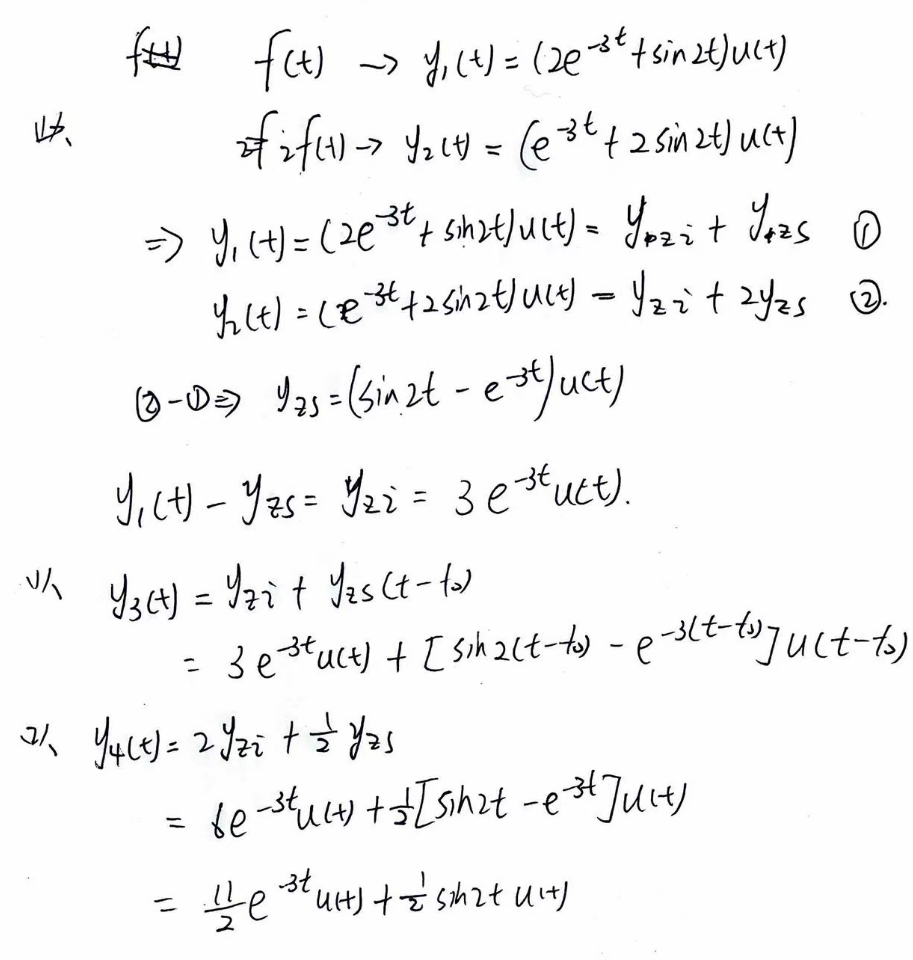 f(t) → y₁(t) = (2e^{-3t} + sin2t)u(t)
2f(t) → y₂(t) = (e^{-3t} + 2sin2t)u(t)
⇒ y₁(t) = (2e^{-3t} + sin2t)u(t) = y_{zi} + y_{zs} ①
y₂(t) = (e^{-3t} + 2sin2t)u(t) = y_{zi} + 2y_{zs} ②.
②-①⇒ y_{zs} = (sin2t - e^{-3t})u(t)
y₁(t) - y_{zs} = y_{zi} = 3e^{-3t}u(t).
1、 y₃(t) = y_{zi} + y_{zs}(t-t₀)
= 3e^{-3t}u(t) + [sin2(t-t₀) - e^{-3(t-t₀)}]u(t-t₀)
2、 y₄(t) = 2y_{zi} + ½y_{zs}
= 6e^{-3t}u(t) + ½[sin2t - e^{-3t}]u(t)
= 11/2 e^{-3t}u(t) + ½sin2t u(t)